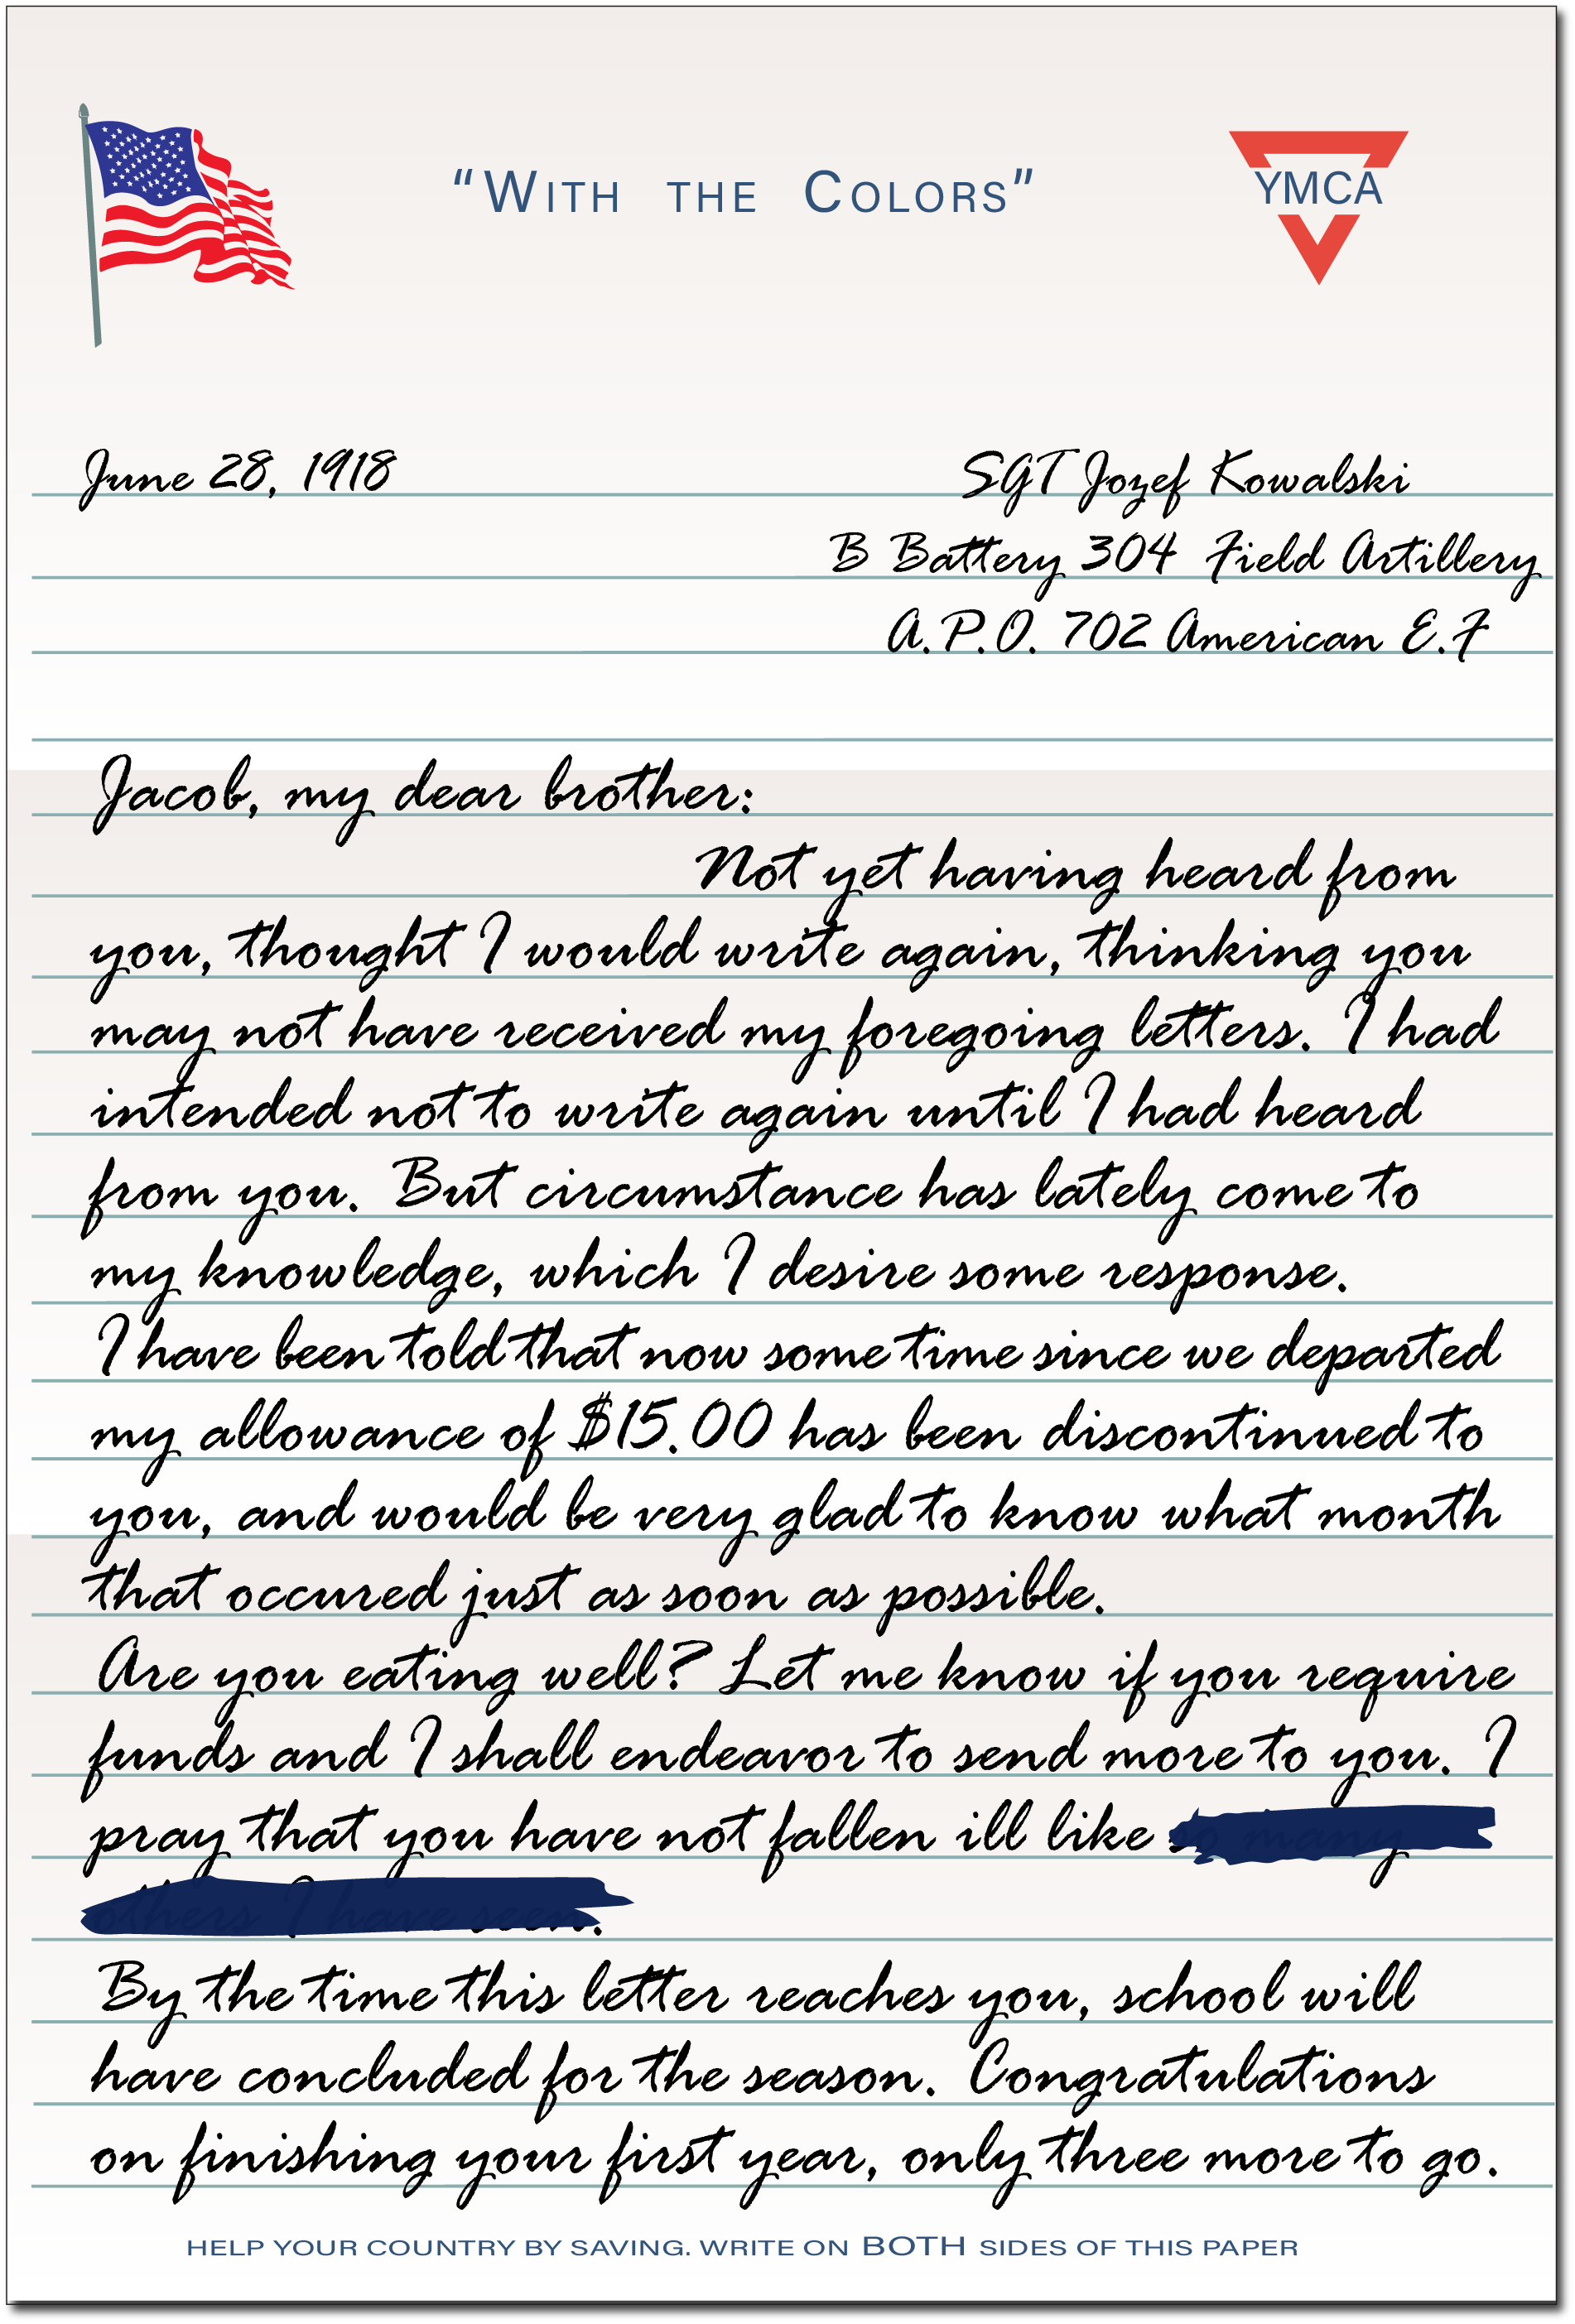 “WITH THE COLORS”
YMCA
June 28, 1918
SGT Jozef Kowalski
B Battery 304 Field Artillery
A.P.O. 702 American E.F
Jacob, my dear brother:
Not yet having heard from
you, thought I would write again, thinking you
may not have received my foregoing letters. I had
intended not to write again until I had heard
from you. But circumstance has lately come to
my knowledge, which I desire some response.
I have been told that now some time since we departed
my allowance of $15.00 has been discontinued to
you, and would be very glad to know what month
that occured just as soon as possible.
Are you eating well? Let me know if you require
funds and I shall endeavor to send more to you. I
pray that you have not fallen ill like so many
others I have seen.
By the time this letter reaches you, school will
have concluded for the season. Congratulations
on finishing your first year, only three more to go.
HELP YOUR COUNTRY BY SAVING. WRITE ON BOTH SIDES OF THIS PAPER